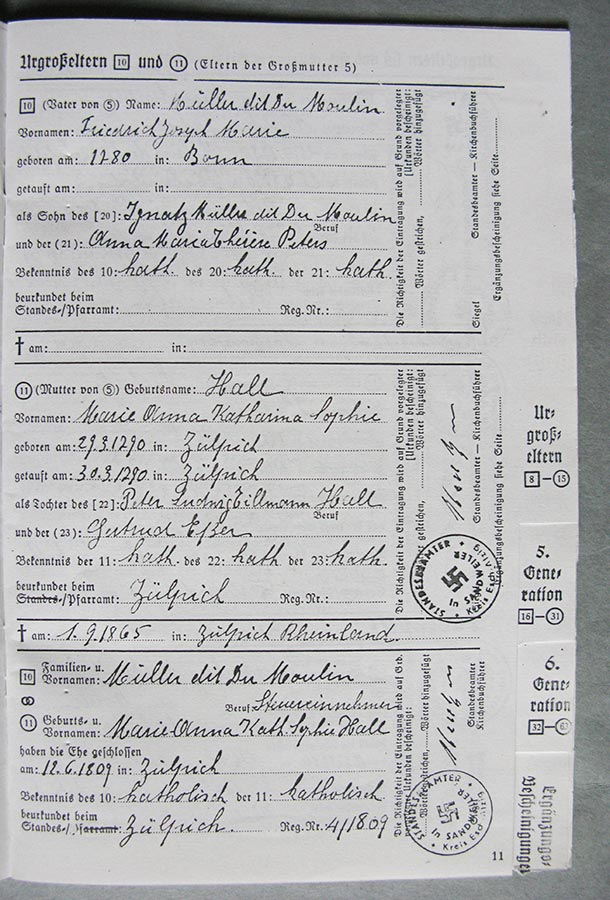 Urgroßeltern 10 und 11 (Eltern der Großmutter 5)
10 (Vater von 5) Name: Müller dit Du Moulin
Vornamen: Friedrich Joseph Marie
geboren am: 1780 in: Bonn
getauft am: in:
als Sohn des [20]: Ignatz Müller dit Du Moulin
Beruf
und der (21): Anna Maria Thérèse Peters
Bekenntnis des 10: kath. des 20: kath. der 21: kath.
beurkundet beim
Standes-/Pfarramt: Reg.Nr.:
† am: in:
Die Richtigkeit der Eintragung wird auf Grund vorgelegter
Urkunden bescheinigt:
Wörter gestrichen, Wörter hinzugefügt
Siegel Standesbeamter — Kirchenbuchführer
Ergänzungsbescheinigung siehe Seite
11 (Mutter von 5) Geburtsname: Hall
Vornamen: Marie Anna Katharina Sophie
geboren am: 29.3.1790 in: Zülpich
getauft am: 30.3.1790 in: Zülpich
als Tochter des [22]: Peter Ludwig Tillmann Hall
Beruf
und der (23): Gertrud Eßer
Bekenntnis der 11: kath. des 22: kath. der 23: kath.
beurkundet beim
Standes-/Pfarramt: Zülpich Reg.Nr.:
† am: 1.9.1865 in: Zülpich Rheinland
Die Richtigkeit der Eintragung wird auf Grund vorgelegter
Urkunden bescheinigt:
gestrichen, Wörter hinzugefügt
Standesbeamter — Kirchenbuchführer
Ergänzungsbescheinigung siehe Seite
STANDESBEAMTER
in SANDWEILER
Kreis Esch
10 Familien- u.
Vornamen: Müller dit Du Moulin
Beruf Steuereinnehmer
11 Geburts- u.
Vornamen: Marie Anna Kath. Sophie Hall
haben die Ehe geschlossen
am: 12.6.1809 in: Zülpich
Bekenntnis des 10: katholisch der 11: katholisch
beurkundet beim
Standes-/Pfarramt: Zülpich. Reg.Nr. 4/1809
Die Richtigkeit der Eintragung wird auf Grd.
Wörter hinzugefügt
Standesbeamter
Kirchenbuchführer
STANDESBEAMTER
in SANDWEILER
Kreis Esch
11
Ur-
groß-
eltern
8 — 15
5.
Gene-
ration
16 — 31
6.
Gene-
ration
32 — 63
Ergänzungs-
Bescheinigungen